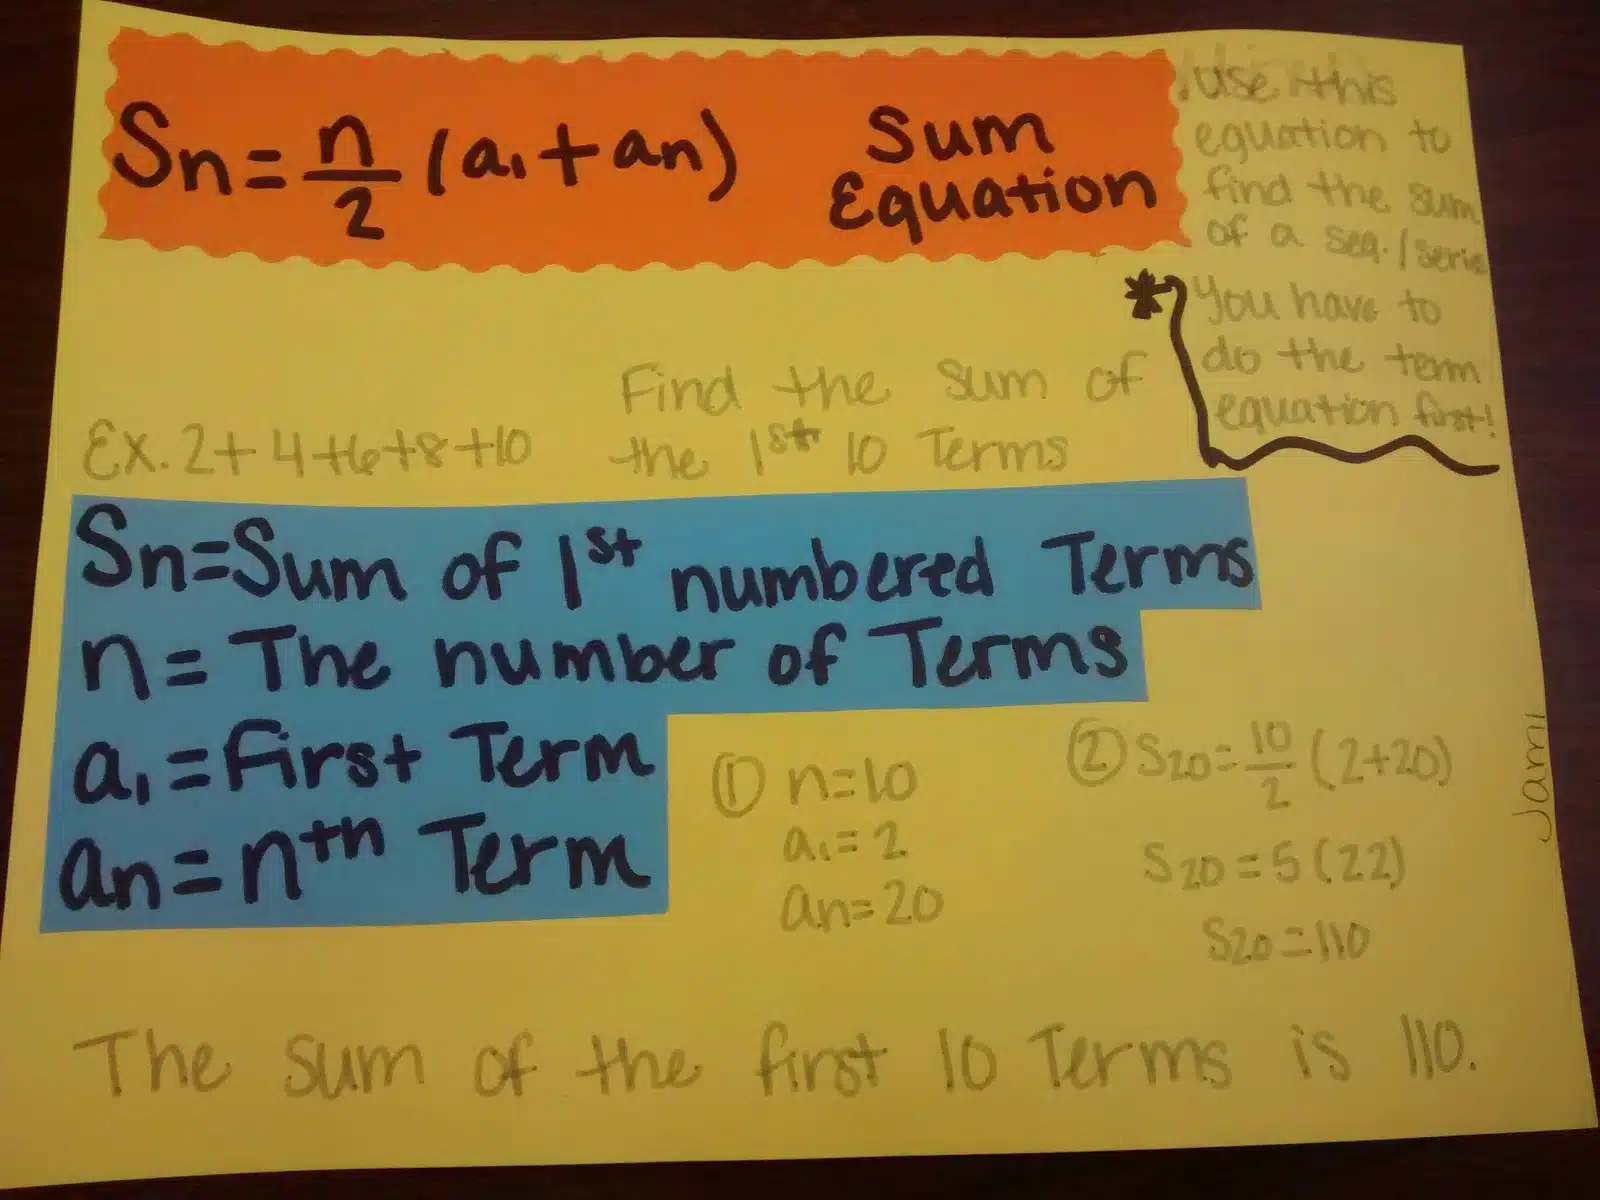 Sn = n/2 (a₁ + an)
Sum
Equation
Use this
equation to
find the sum
of a seq. / serie
* You have to
do the term
equation first!
Ex. 2+4+6+8+10
Find the sum of
the 1st 10 Terms
Sn = Sum of 1st numbered Terms
n = The number of Terms
a₁ = First Term
an = nth Term
① n=10
a₁=2
an=20
② S20 = 10/2 (2+20)
S20 = 5(22)
S20 = 110
The sum of the first 10 Terms is 110.